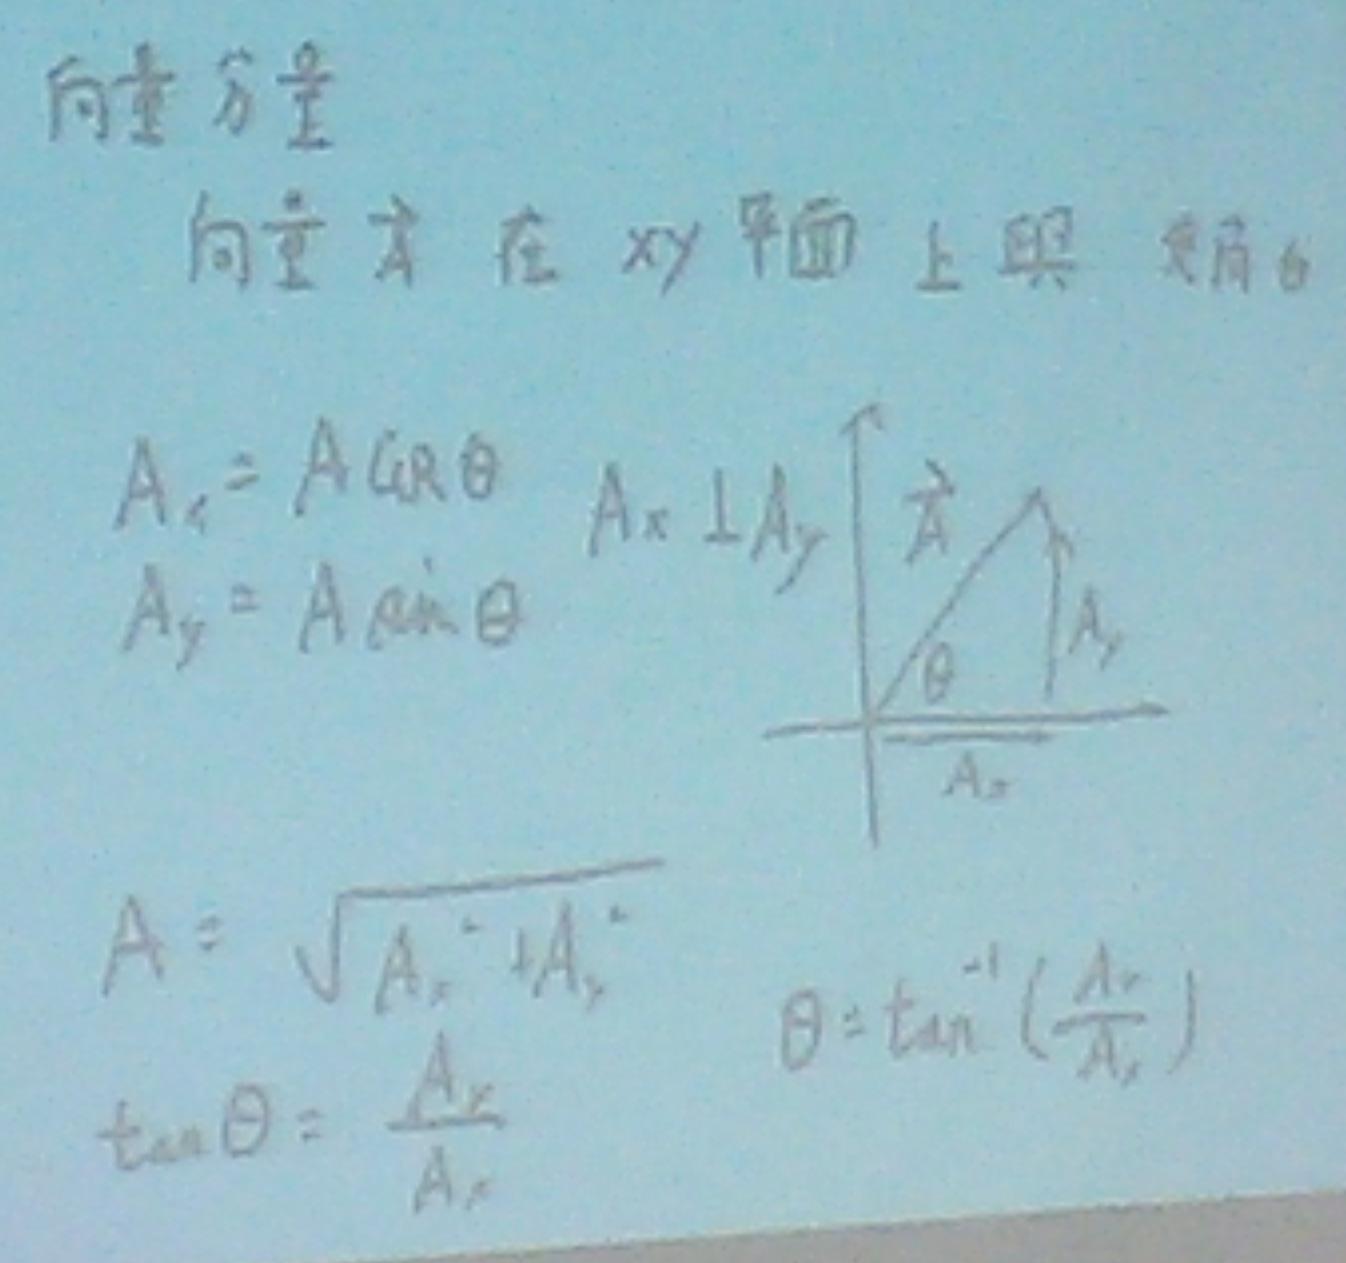 向量分量
向量 A⃗ 在 xy 平面 上 與 夾角 θ
Ax = A cos θ
Ax ⊥ Ay
A⃗
Ay = A sin θ
θ
Ay
Ax
A = √(Ax² + Ay²)
θ = tan⁻¹ (Ay/Ax)
tan θ = Ay/Ax